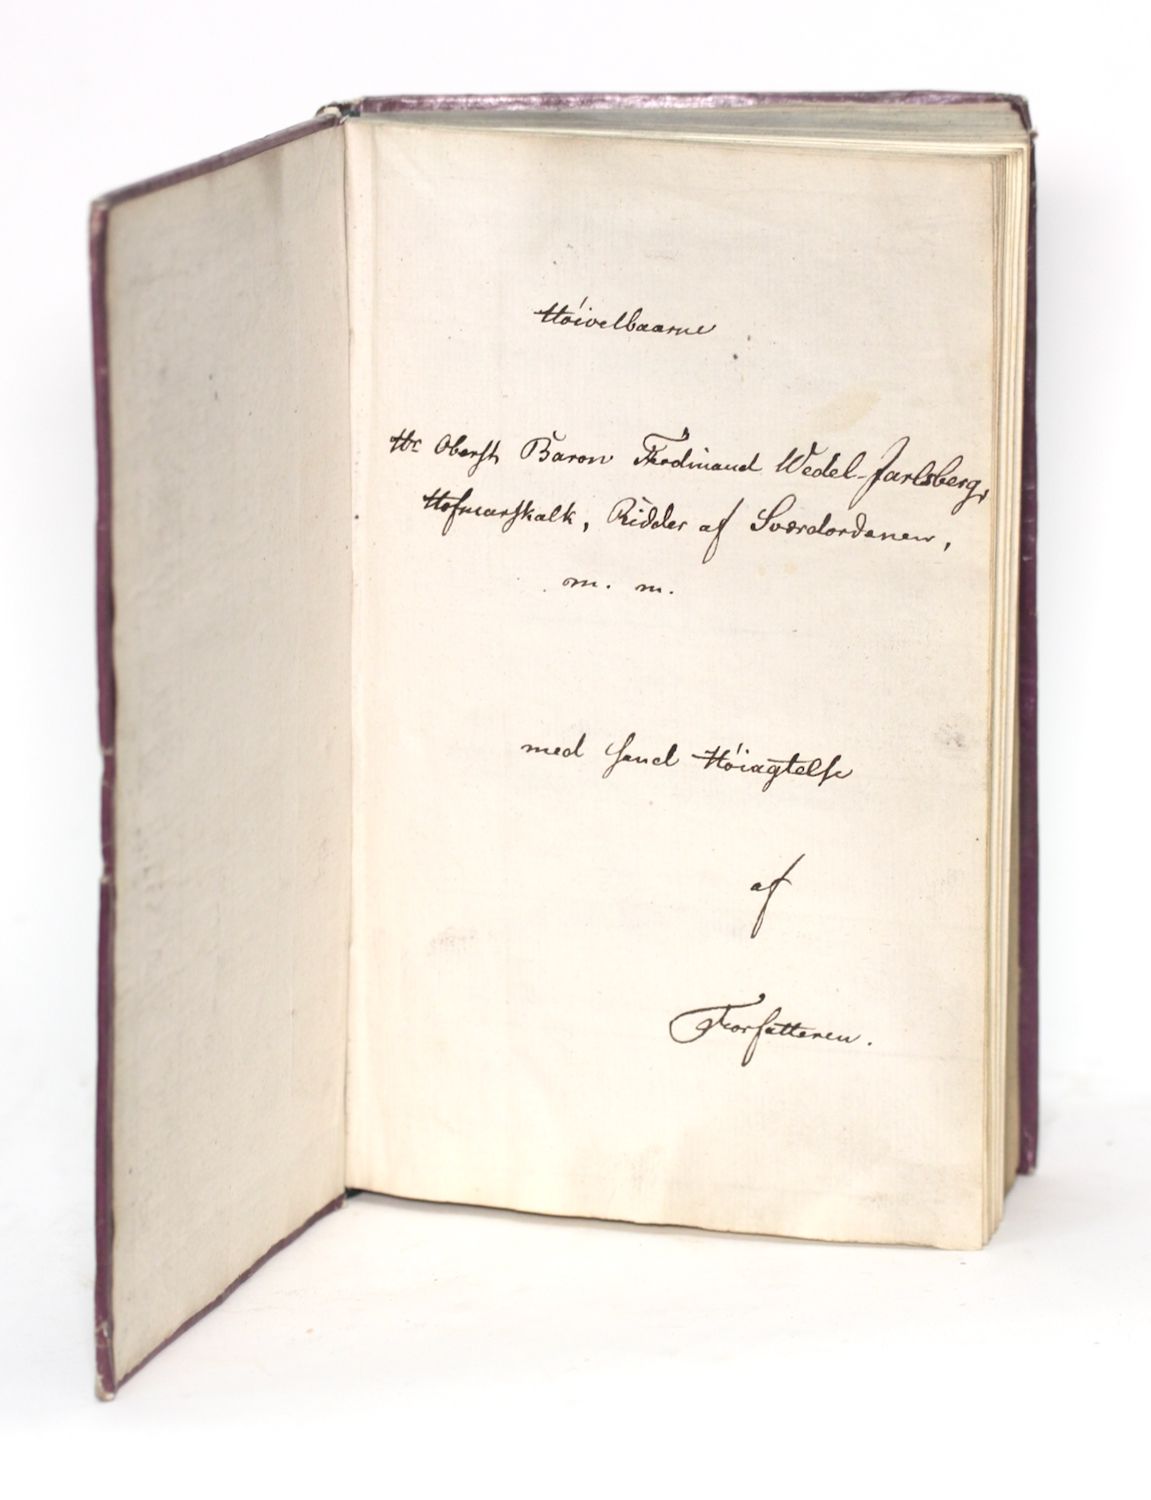 Höivelbaarne
Hr Oberst Baron Ferdinand Wedel-Jarlsberg,
Hofmarskalk, Ridder af Sværdordenen,
m. m.
med sand Höiagtelse
af
Forfatteren.